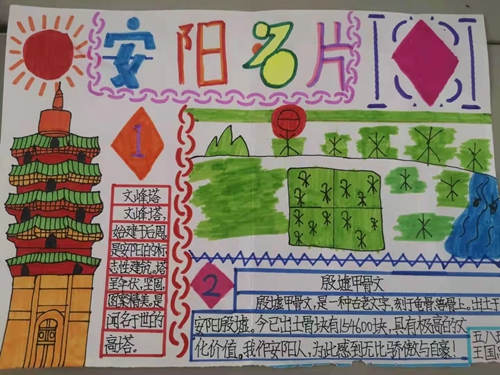 安阳名片
1
文峰塔
文峰塔,
始建于后周,
是安阳的标
志性建筑,塔
呈伞状,坚固,
图案精美,是
闻名于世的
高塔。
2
殷墟甲骨文
殷墟甲骨文,是一种古老文字,刻于龟骨、兽骨上。出土于
安阳殷墟。今已出土骨块有154600块,具有极高的文
化价值。我作安阳人,为此感到无比骄傲与自豪!
五八
王国